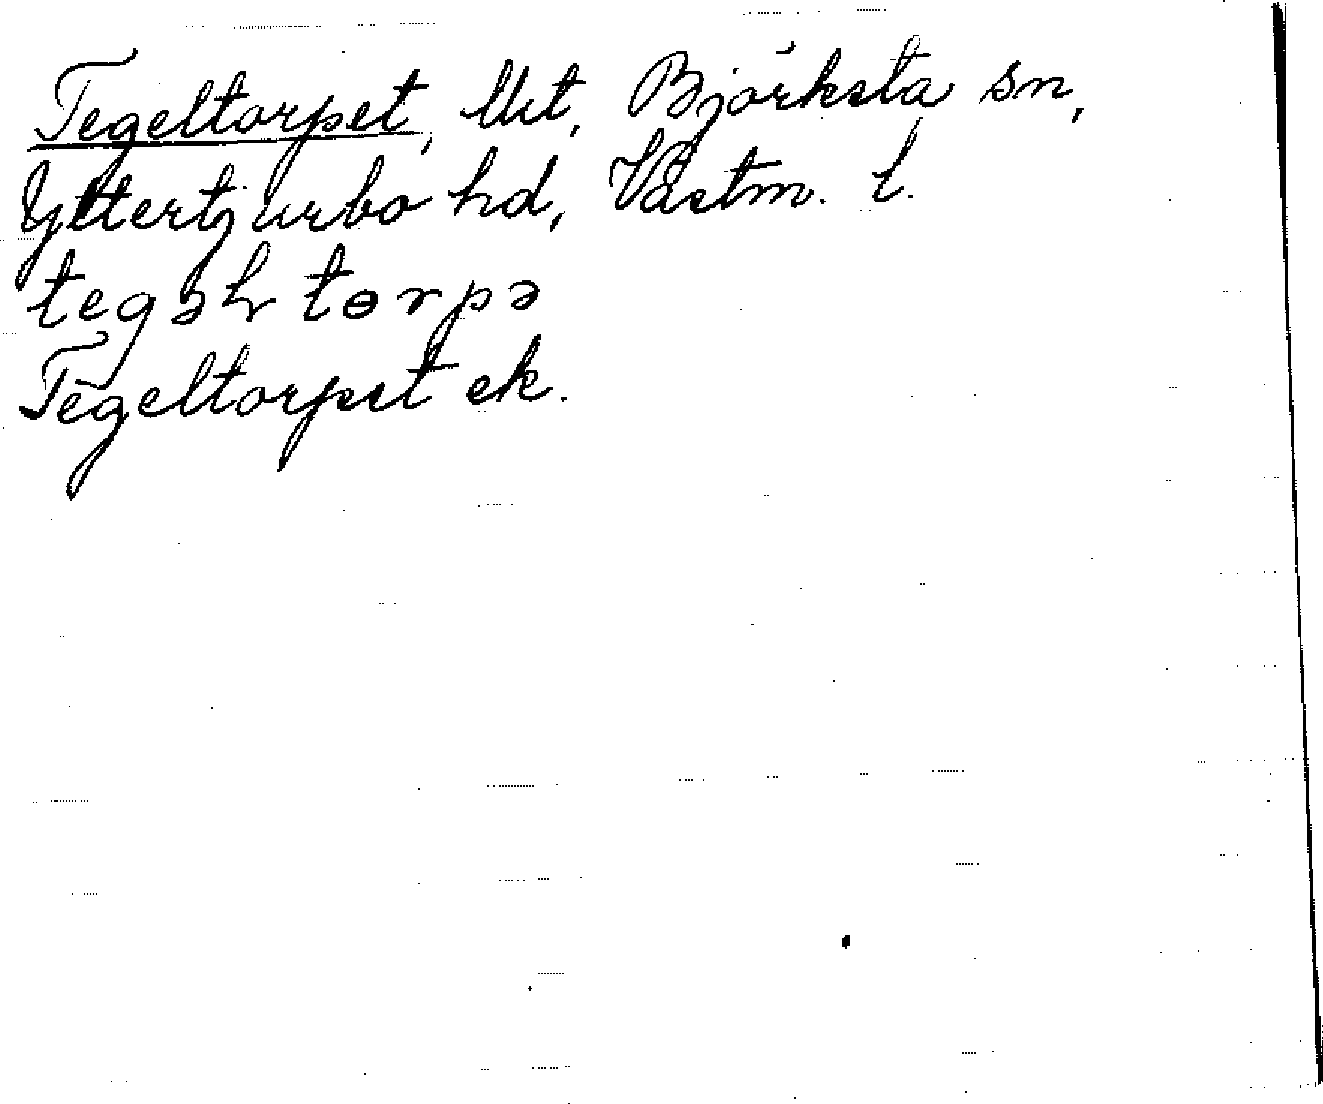 Tegeltorpet, Utt, Björksta sn,
Yttertjurbo hd, Västm. l.
tegəɬ tɵrpə
Tegeltorpet ek.